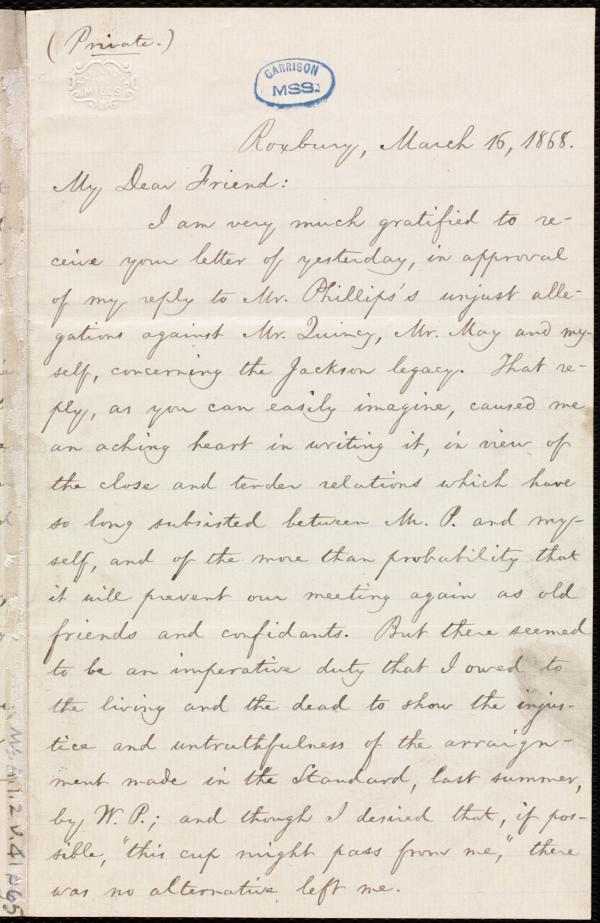 (Private.)
GARRISON
MSS.
MILLS
Roxbury, March 16, 1868.
My Dear Friend:
I am very much gratified to re-
ceive your letter of yesterday, in approval
of my reply to Mr. Phillips's unjust alle-
gations against Mr. Quincy, Mr. May and my-
self, concerning the Jackson legacy. That re-
ply, as you can easily imagine, caused me
an aching heart in writing it, in view of
the close and tender relations which have
so long subsisted between Mr. P. and my-
self, and of the more than probability that
it will prevent our meeting again as old
friends and confidants. But there seemed
to be an imperative duty that I owed to
the living and the dead to show the injus-
tice and untruthfulness of the arraign-
ment made in the Standard, last summer,
by W. P.; and though I desired that, if pos-
sible, "this cup might pass from me," there
was no alternative left me.
Ms. A. 1. 2 v. 41 p 65